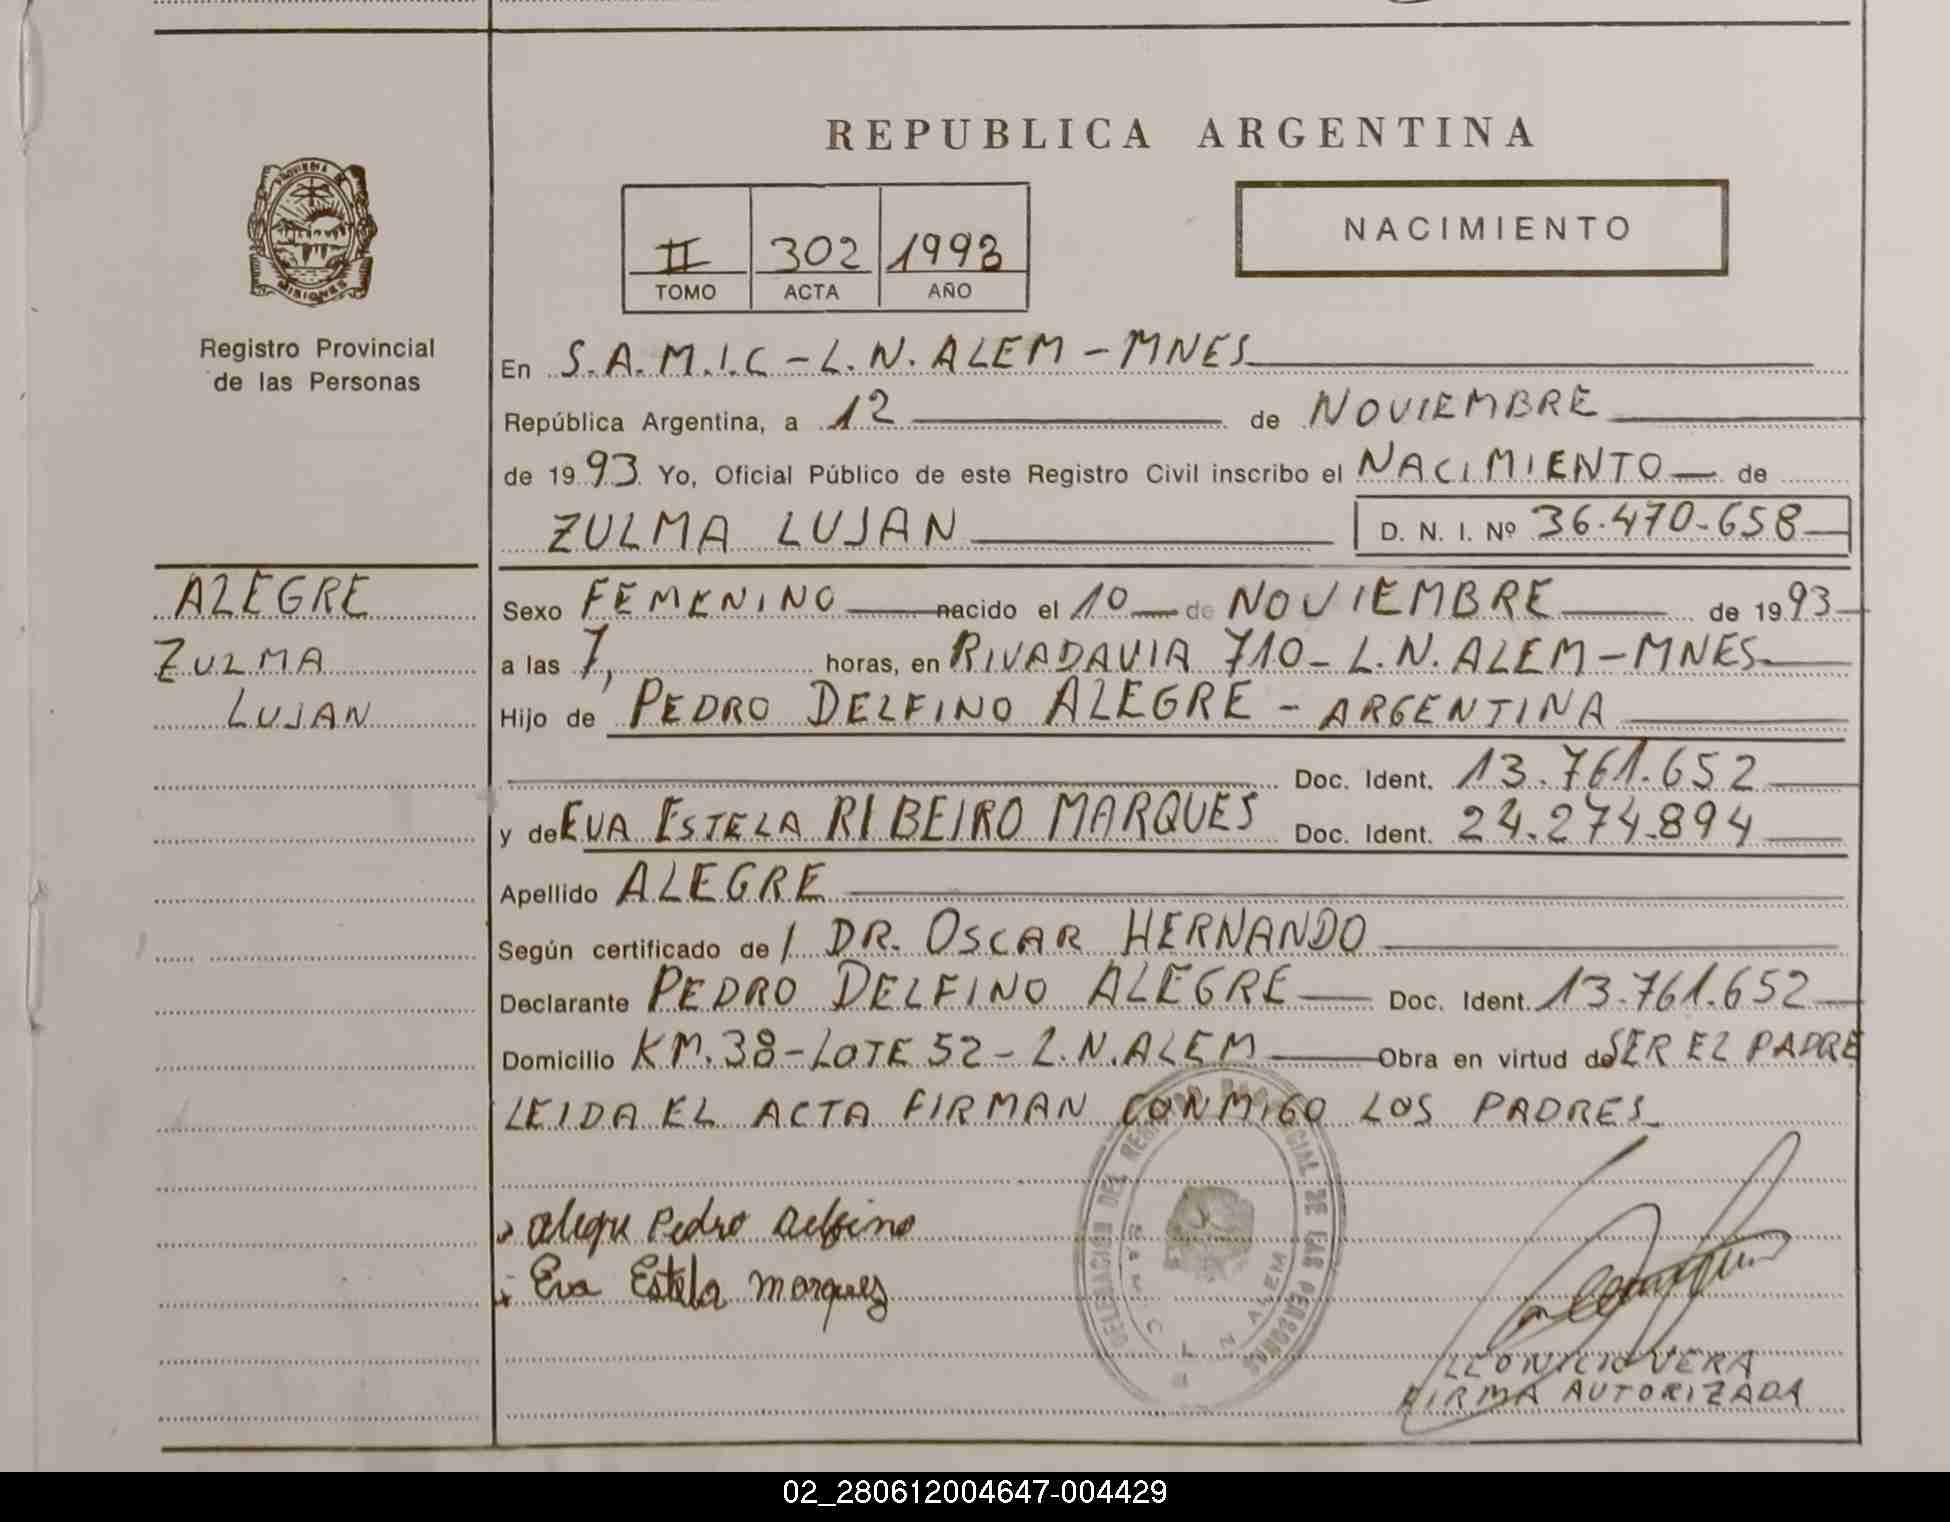 REPUBLICA ARGENTINA
PROVINCIA DE
MISIONES
II 302 1993
TOMO ACTA AÑO
NACIMIENTO
Registro Provincial
de las Personas
En S.A.M.I.C - L.N. ALEM - MNES
República Argentina, a 12 de NOVIEMBRE
de 1993 Yo, Oficial Público de este Registro Civil inscribo el NACIMIENTO de
ZULMA LUJAN D. N. I. Nº 36.470.658
ALEGRE
ZULMA
LUJAN
Sexo FEMENINO nacido el 10 de NOVIEMBRE de 1993
a las 7, horas, en RIVADAVIA 710 - L.N. ALEM - MNES
Hijo de PEDRO DELFINO ALEGRE - ARGENTINA
Doc. Ident. 13.761.652
y de EVA ESTELA RIBEIRO MARQUES Doc. Ident. 24.274.894
Apellido ALEGRE
Según certificado de / DR. OSCAR HERNANDO
Declarante PEDRO DELFINO ALEGRE Doc. Ident. 13.761.652
Domicilio KM. 38 - LOTE 52 - L.N. ALEM Obra en virtud de SER EL PADRE
LEIDA EL ACTA FIRMAN CONMIGO LOS PADRES
Alegre Pedro Delfino
Eva Estela Marques
DELEGACION DEL REGISTRO PROVINCIAL DE LAS PERSONAS
S.A.M.I.C L.N. ALEM
LEONICIO VERA
FIRMA AUTORIZADA
02_280612004647-004429